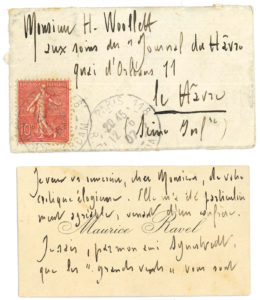 Monsieur H. Woollett
aux soins du "Journal du Hâvre
quai d'Orléans 11
le Hâvre
Seine Inf
10
20 45
12
Je veux vous remercier, cher Monsieur, de votre
critique élogieuse. Elle m'a été particulière
ment agréable, venant d'un confrère.
Maurice Ravel
Je sais, par mon ami
que les "grands vents" vous sont